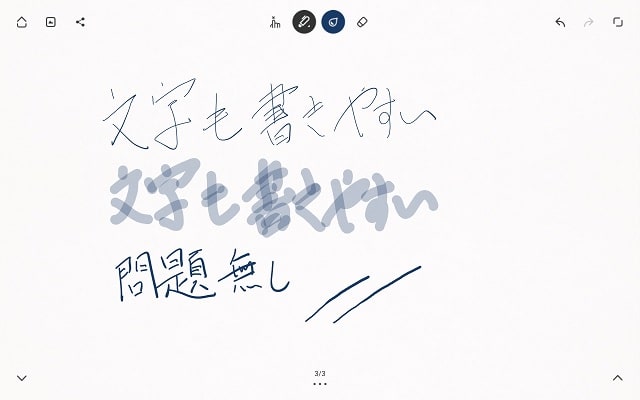 文字も書きやすい
文字も書きやすい
問題無し
3/3